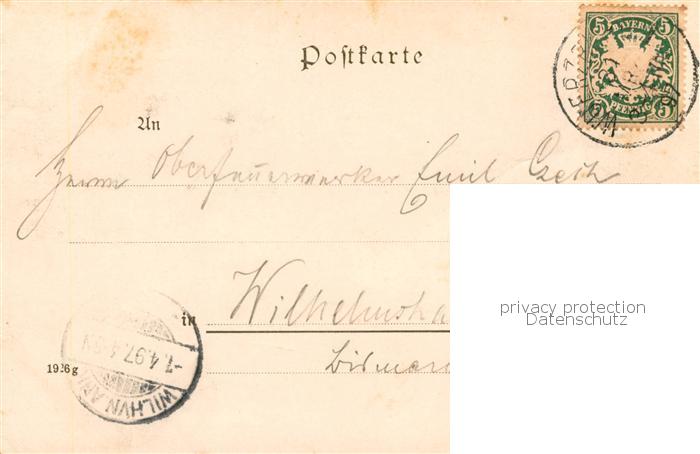 Postkarte
5 BAYERN 5
5 PFENNIG 5
An
Herrn Oberfeuerwerker Emil Czech
in Wilhelmsha
Bismar
1926g
-1.4.97.4-5N
WILHVN
privacy protection
Datenschutz